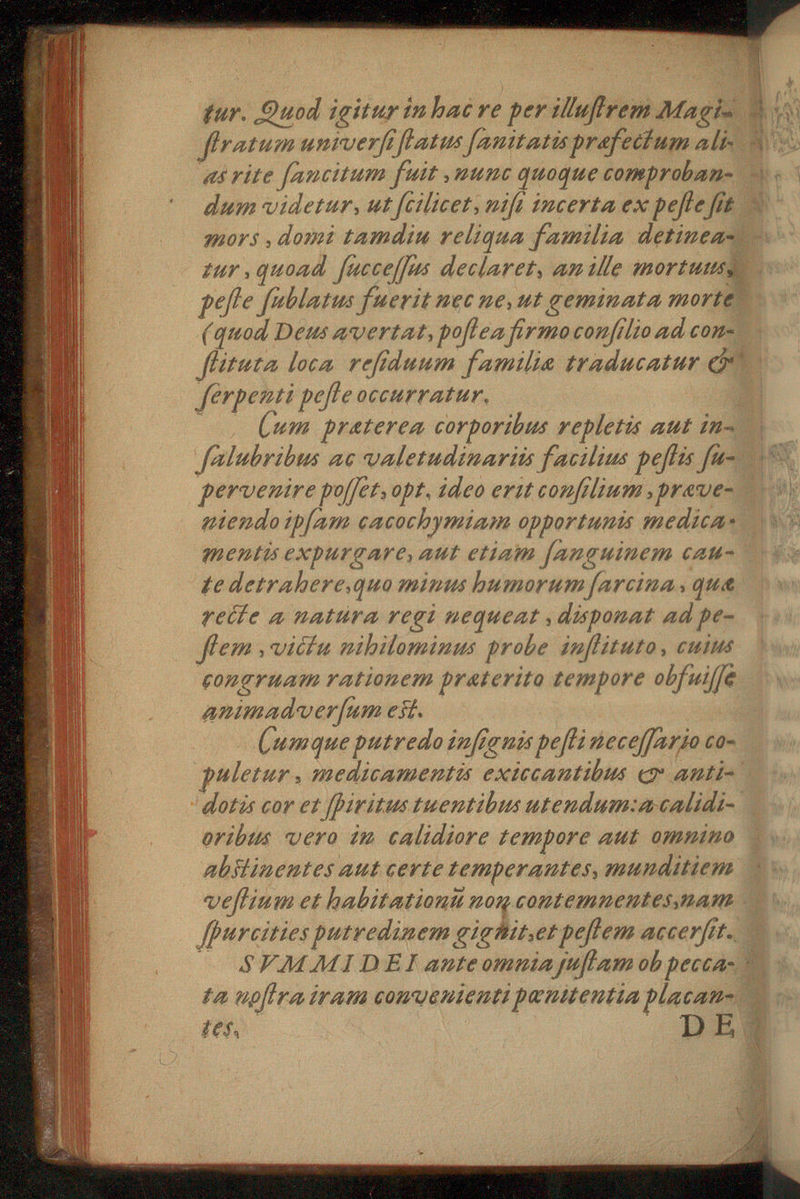 tur. Quod igitur in hac re per illuſtrem Magi-
ſtratum univerſi ſtatus ſanitatis præfectum ali-
as rite ſancitum fuit, nunc quoque comproban-
dum videtur, ut ſcilicet, niſi incerta ex peſte ſit
mors, domi tamdiu reliqua familia detinea-
tur, quoad ſucceſſus declaret, an ille mortuus,
peſte ſublatus fuerit nec ne, ut geminata morte
(quod Deus avertat, poſtea firmo conſilio ad con-
ſtituta loca reſiduum familiæ traducatur &
ſerpenti peſte occurratur.
Cum præterea corporibus repletis aut in-
ſalubribus ac valetudinariis facilius peſtis ſu-
pervenire poſſet, opt. ideo erit conſilium, præve-
niendo ipſam cacochymiam opportunis medica-
mentis expurgare, aut etiam ſanguinem cau-
te detrahere, quo minus humorum ſarcina, quæ
recte a natura regi nequeat, disponat ad pe-
ſtem, victu nihilominus probe inſtituto, cuius
congruam rationem præterito tempore obfuiſſe
animadverſum est.
Cumque putredo inſignis peſti neceſſario co-
puletur, medicamentis exiccantibus & anti-
dotis cor et ſpiritus tuentibus utendum: a calidi-
oribus vero in calidiore tempore aut omnino
abstinentes aut certe temperantes, munditiem
veſtium et habitationū non contemnentes, nam
ſpurcities putredinem gignit, et peſtem accerſit.
SVMMI DEI ante omnia juſtam ob pecca-
ta noſtra iram convenienti pœnitentia placan-
tes. DE